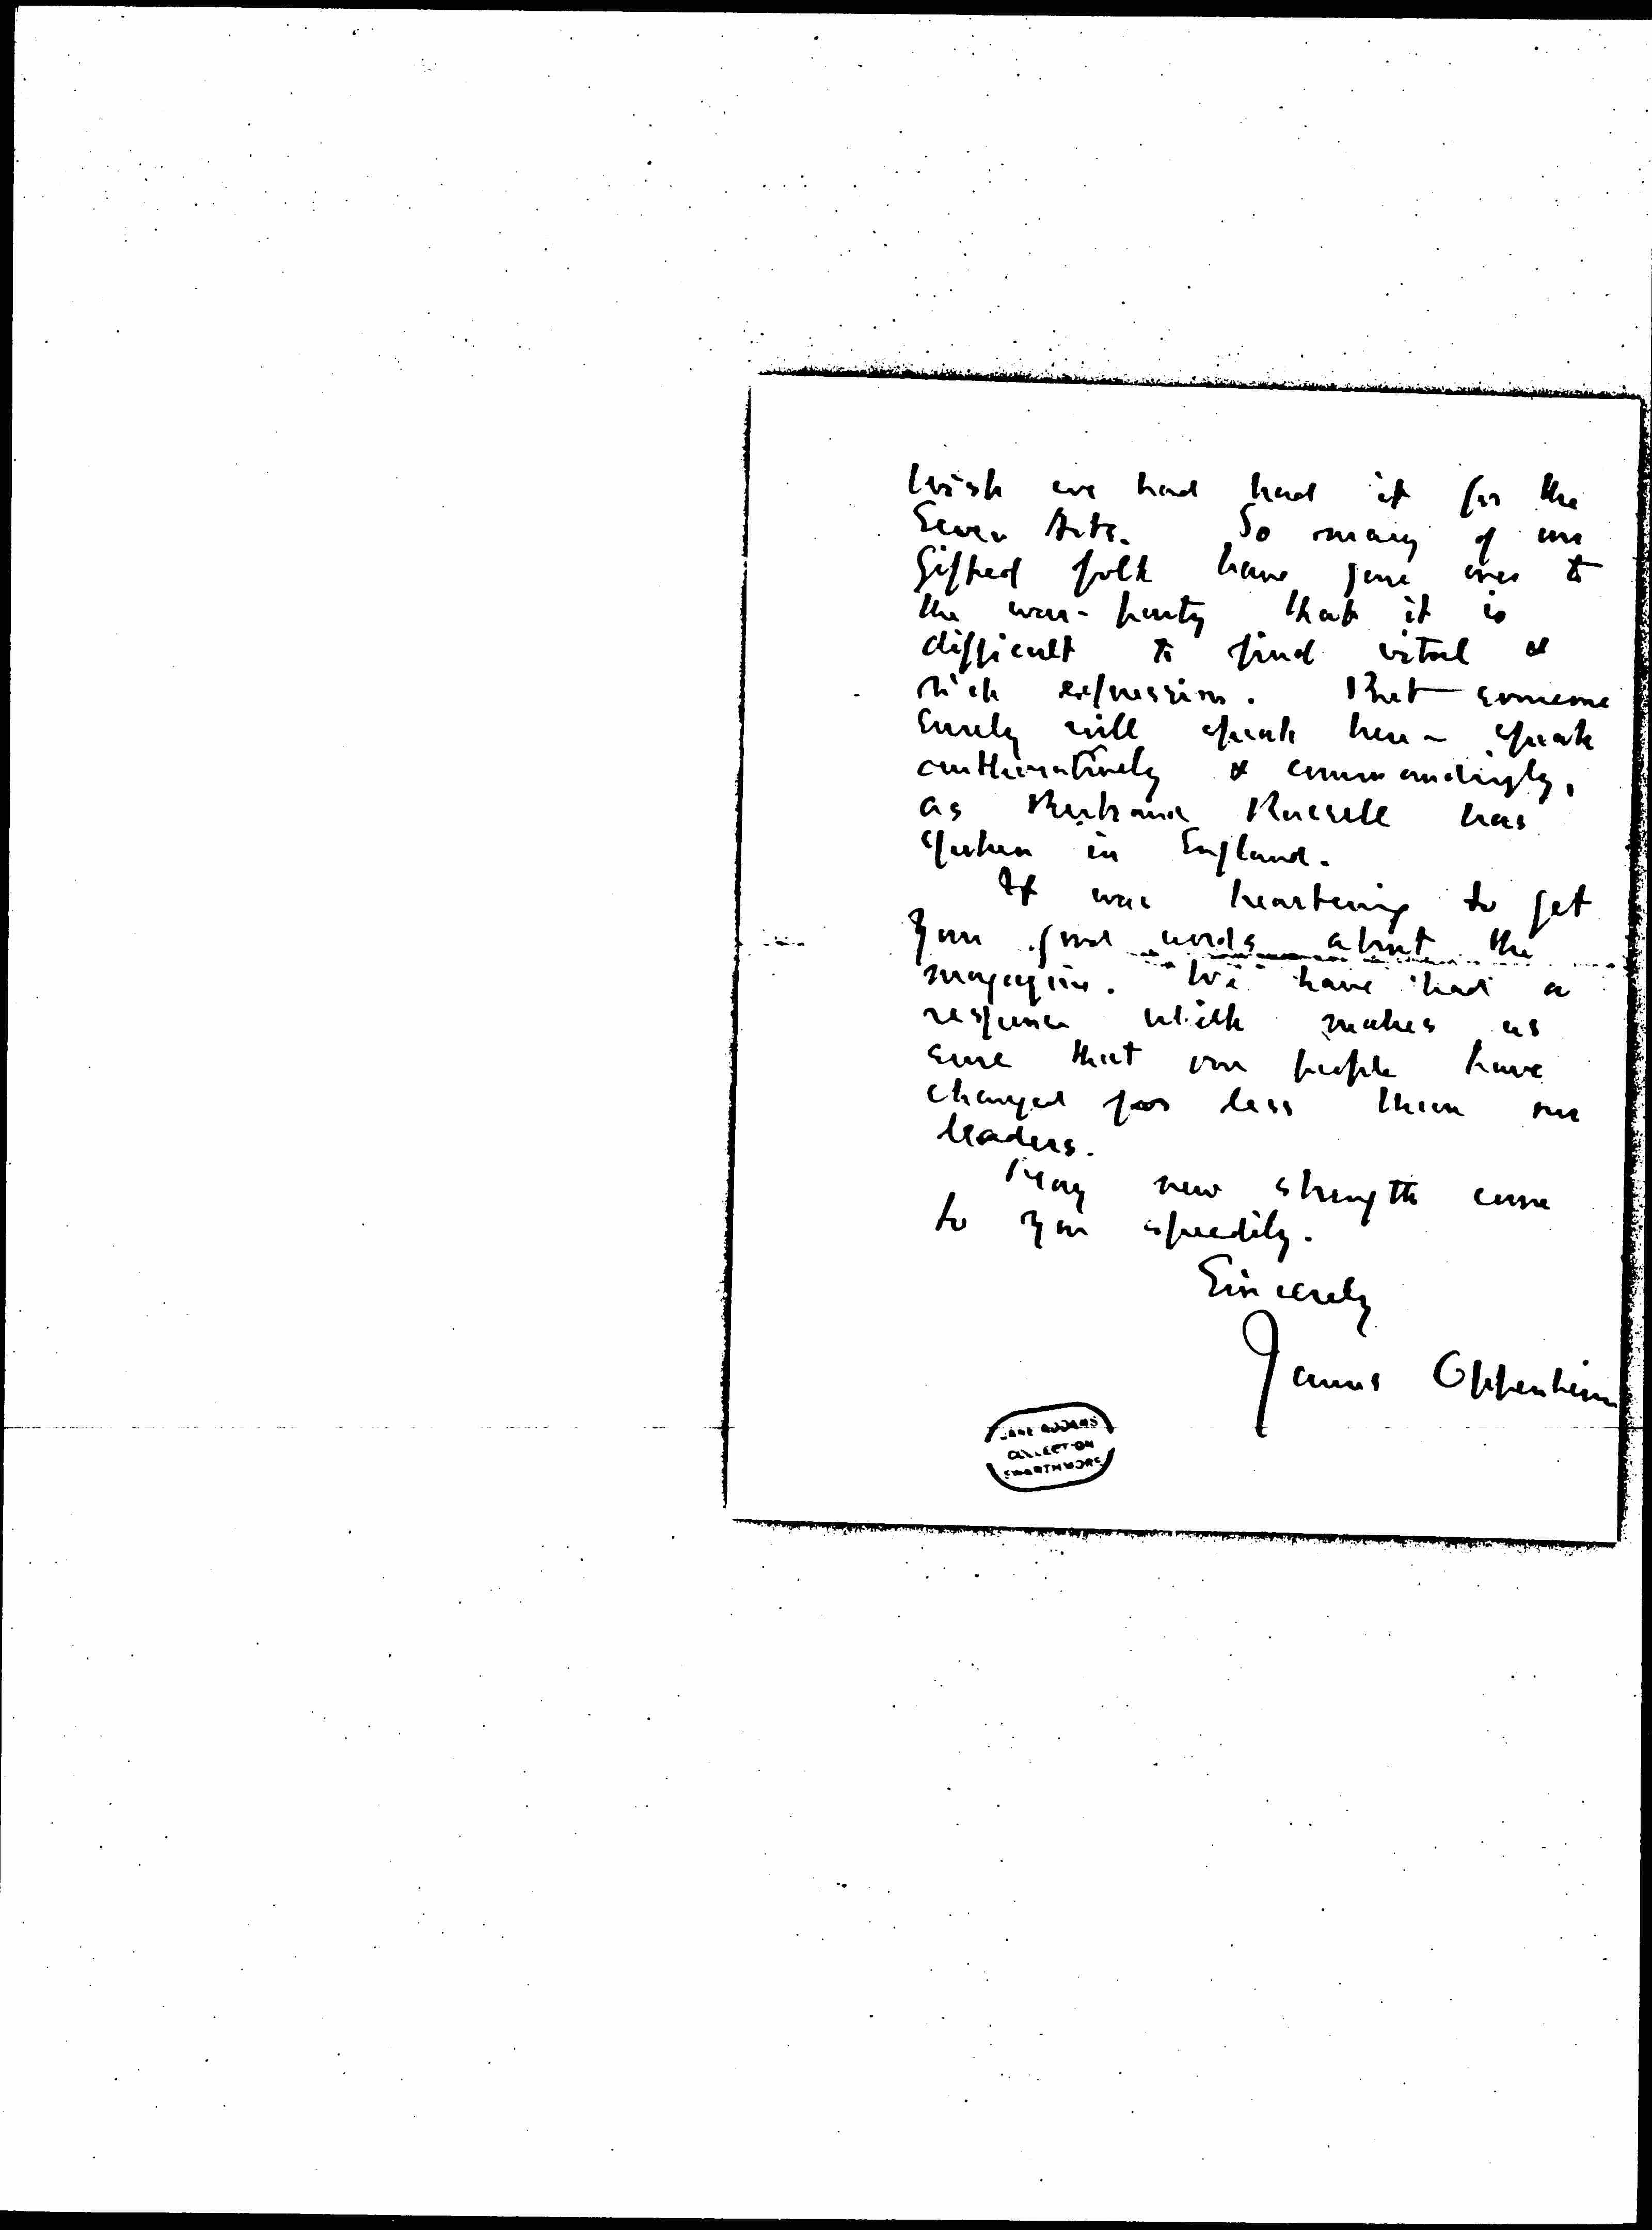 wish we had had it for the
Seven Arts. So many of our
gifted folk have gone over to
the war-party that it is
difficult to find vital &
rich expression. But someone
surely will speak here - speak
authoratively & commandingly,
as Bertrand Russell has
spoken in England.
It was heartening to get
your good words about the
magazine. We have had a
response which makes us
sure that our people have
changed far less than our
leaders.
May new strength come
to you speedily.
Sincerely
James Oppenheim
JANE ADDAMS
COLLECTION
SWARTHMORE